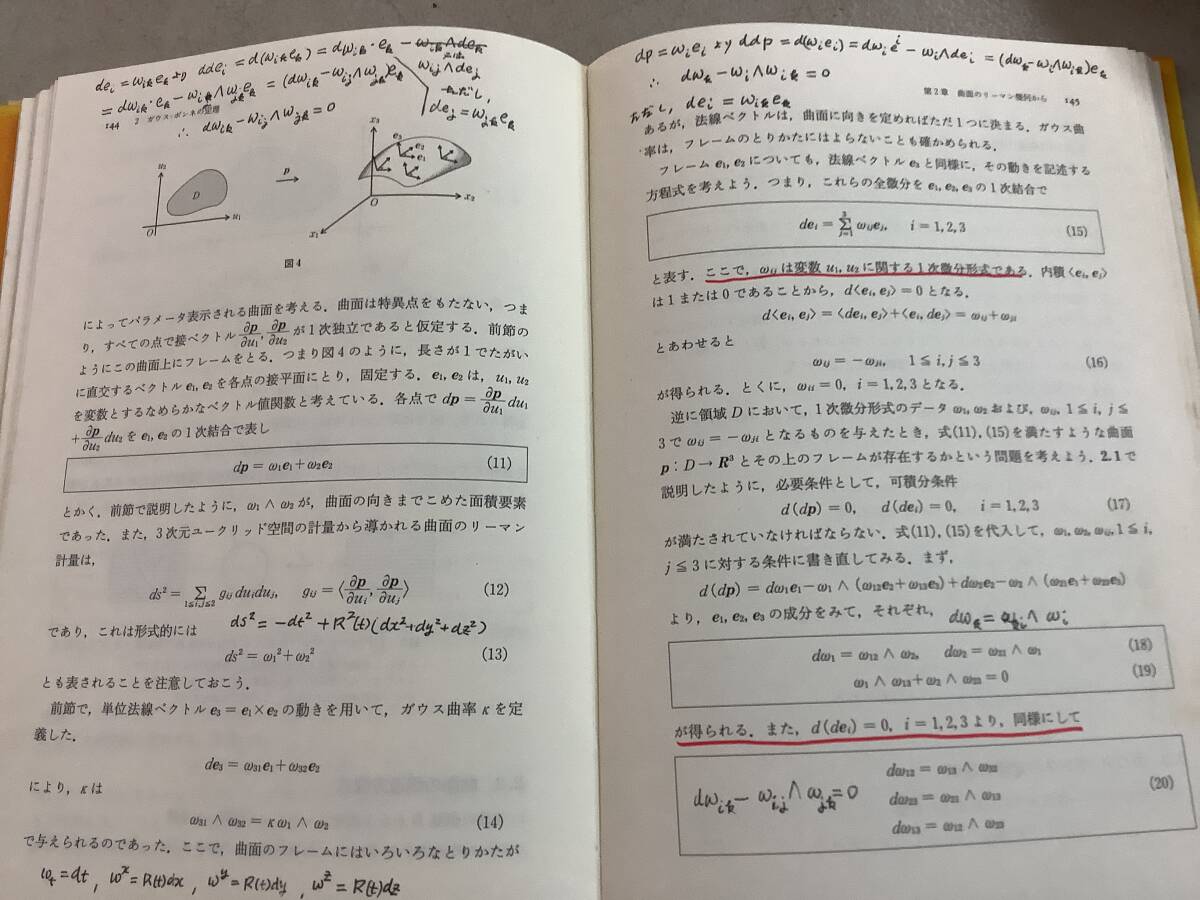 de_i = ω_{ik}e_k より dde_i = d(ω_{ik}e_k) = dω_{ik}・e_k − ω_{ik}∧de_k
ω_{ij}∧de_j
= dω_{ik}・e_k − ω_{ij}∧ω_{jk}e_k = (dω_{ik} − ω_{ij}∧ω_{jk})e_k
ただし,
de_j = ω_{jk}e_k
144 2 ガウス・ボンネの定理
∴ dω_{ik} − ω_{ij}∧ω_{jk} = 0
u₂
D
O
u₁
p
x₃
e₃
e₂
e₁
O
x₂
x₁
図4
によってパラメータ表示される曲面を考える．曲面は特異点をもたない，つま
り，すべての点で接ベクトル ∂p/∂u₁, ∂p/∂u₂ が1次独立であると仮定する．前節の
ようにこの曲面上にフレームをとる．つまり図4のように，長さが1でたがい
に直交するベクトル e₁, e₂ を各点の接平面にとり，固定する．e₁, e₂ は，u₁, u₂
を変数とするなめらかなベクトル値関数と考えている．各点で dp = ∂p/∂u₁ du₁
+ ∂p/∂u₂ du₂ を e₁, e₂ の1次結合で表し
dp = ω₁e₁+ω₂e₂ (11)
とかく．前節で説明したように，ω₁∧ω₂ が，曲面の向きまでこめた面積要素
であった．また，3次元ユークリッド空間の計量から導かれる曲面のリーマン
計量は，
ds² = Σ_{1≦i,j≦2} g_{ij} du_i du_j, g_{ij} = ⟨∂p/∂u_i, ∂p/∂u_j⟩ (12)
であり，これは形式的には ds² = −dt² + R²(t)(dx²+dy²+dz²)
ds² = ω₁²+ω₂² (13)
とも表されることを注意しておこう．
前節で，単位法線ベクトル e₃ = e₁×e₂ の動きを用いて，ガウス曲率 κ を定
義した．
de₃ = ω₃₁e₁+ω₃₂e₂
により，κ は
ω₃₁∧ω₃₂ = κω₁∧ω₂ (14)
で与えられるのであった．ここで，曲面のフレームにはいろいろなとりかたが
ω_t = dt, ω^x = R(t)dx, ω^y = R(t)dy, ω^z = R(t)dz
dp = ω_i e_i より ddp = d(ω_i e_i) = dω_i e_i − ω_i∧de_i = (dω_k − ω_i∧ω_{ik})e_k
∴ dω_k − ω_i∧ω_{ik} = 0
第2章 曲面のリーマン幾何から 145
ただし, de_i = ω_{ik}e_k
あるが，法線ベクトルは，曲面に向きを定めればただ1つに決まる．ガウス曲
率は，フレームのとりかたにはよらないことも確かめられる．
フレーム e₁, e₂ についても，法線ベクトル e₃ と同様に，その動きを記述する
方程式を考えよう．つまり，これらの全微分を e₁, e₂, e₃ の1次結合で
de_i = Σ_{j=1}^{3} ω_{ij}e_j, i = 1, 2, 3 (15)
と表す．ここで，ω_{ij} は変数 u₁, u₂ に関する1次微分形式である．内積 ⟨e_i, e_j⟩
は1または0であることから，d⟨e_i, e_j⟩ = 0 となる．
d⟨e_i, e_j⟩ = ⟨de_i, e_j⟩+⟨e_i, de_j⟩ = ω_{ij}+ω_{ji}
とあわせると
ω_{ij} = −ω_{ji}, 1≦i, j≦3 (16)
が得られる．とくに，ω_{ii} = 0, i = 1, 2, 3 となる．
逆に領域 D において，1次微分形式のデータ ω₁, ω₂ および，ω_{ij}, 1≦i, j≦
3 で ω_{ij} = −ω_{ji} となるものを与えたとき，式(11), (15)を満たすような曲面
p : D→R³ とその上のフレームが存在するかという問題を考えよう．2.1 で
説明したように，必要条件として，可積分条件
d(dp) = 0, d(de_i) = 0, i = 1, 2, 3 (17)
が満たされていなければならない．式(11), (15)を代入して，ω₁, ω₂, ω_{ij}, 1≦i,
j≦3 に対する条件に書き直してみる．まず，
d(dp) = dω₁e₁−ω₁∧(ω₁₂e₂+ω₁₃e₃)+dω₂e₂−ω₂∧(ω₂₁e₁+ω₂₃e₃)
より，e₁, e₂, e₃ の成分をみて，それぞれ， dω_k = ω_{ki}∧ω_i
dω₁ = ω₁₂∧ω₂, dω₂ = ω₂₁∧ω₁ (18)
ω₁∧ω₁₃+ω₂∧ω₂₃ = 0 (19)
が得られる．また，d(de_i) = 0, i = 1, 2, 3 より，同様にして
dω_{ik} − ω_{ij}∧ω_{jk} = 0
dω₁₂ = ω₁₃∧ω₃₂
dω₂₃ = ω₂₁∧ω₁₃ (20)
dω₁₃ = ω₁₂∧ω₂₃